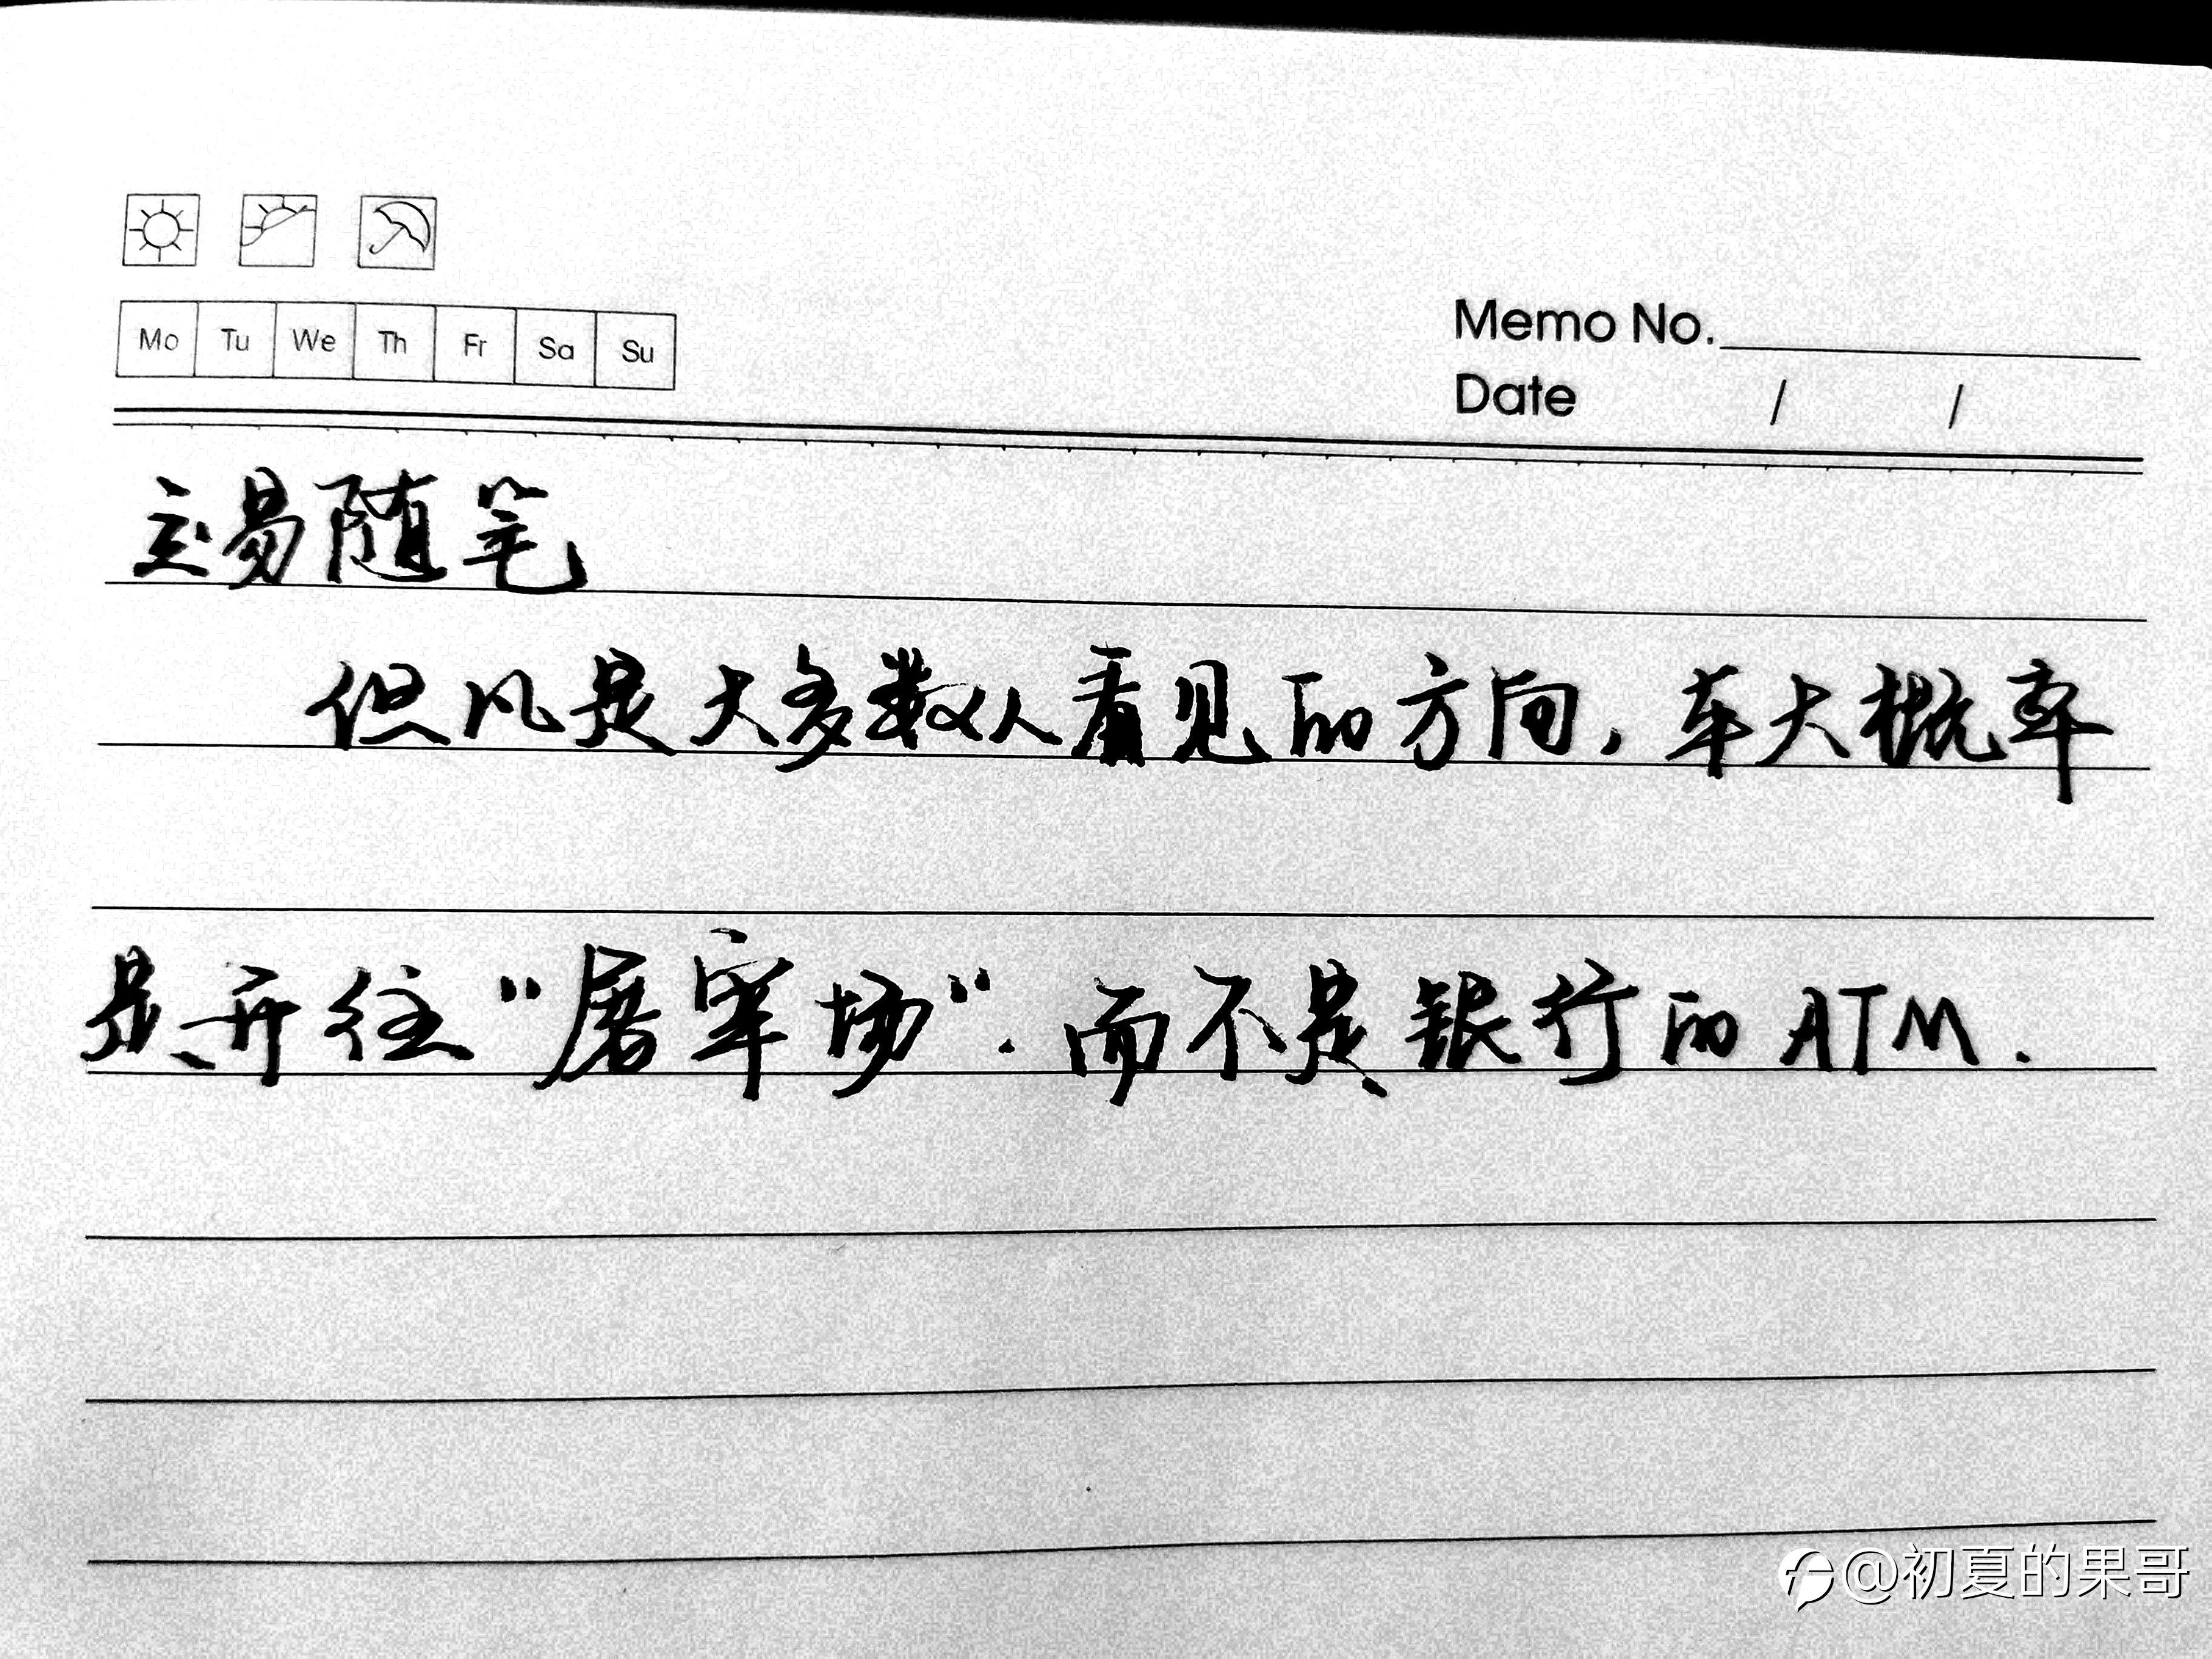 Mo Tu We Th Fr Sa Su
Memo No.
Date / /
交易随笔
但凡是大多数人看见的方向,车大概率
是开往“屠宰场”.而不是银行的ATM.
@初夏的果哥